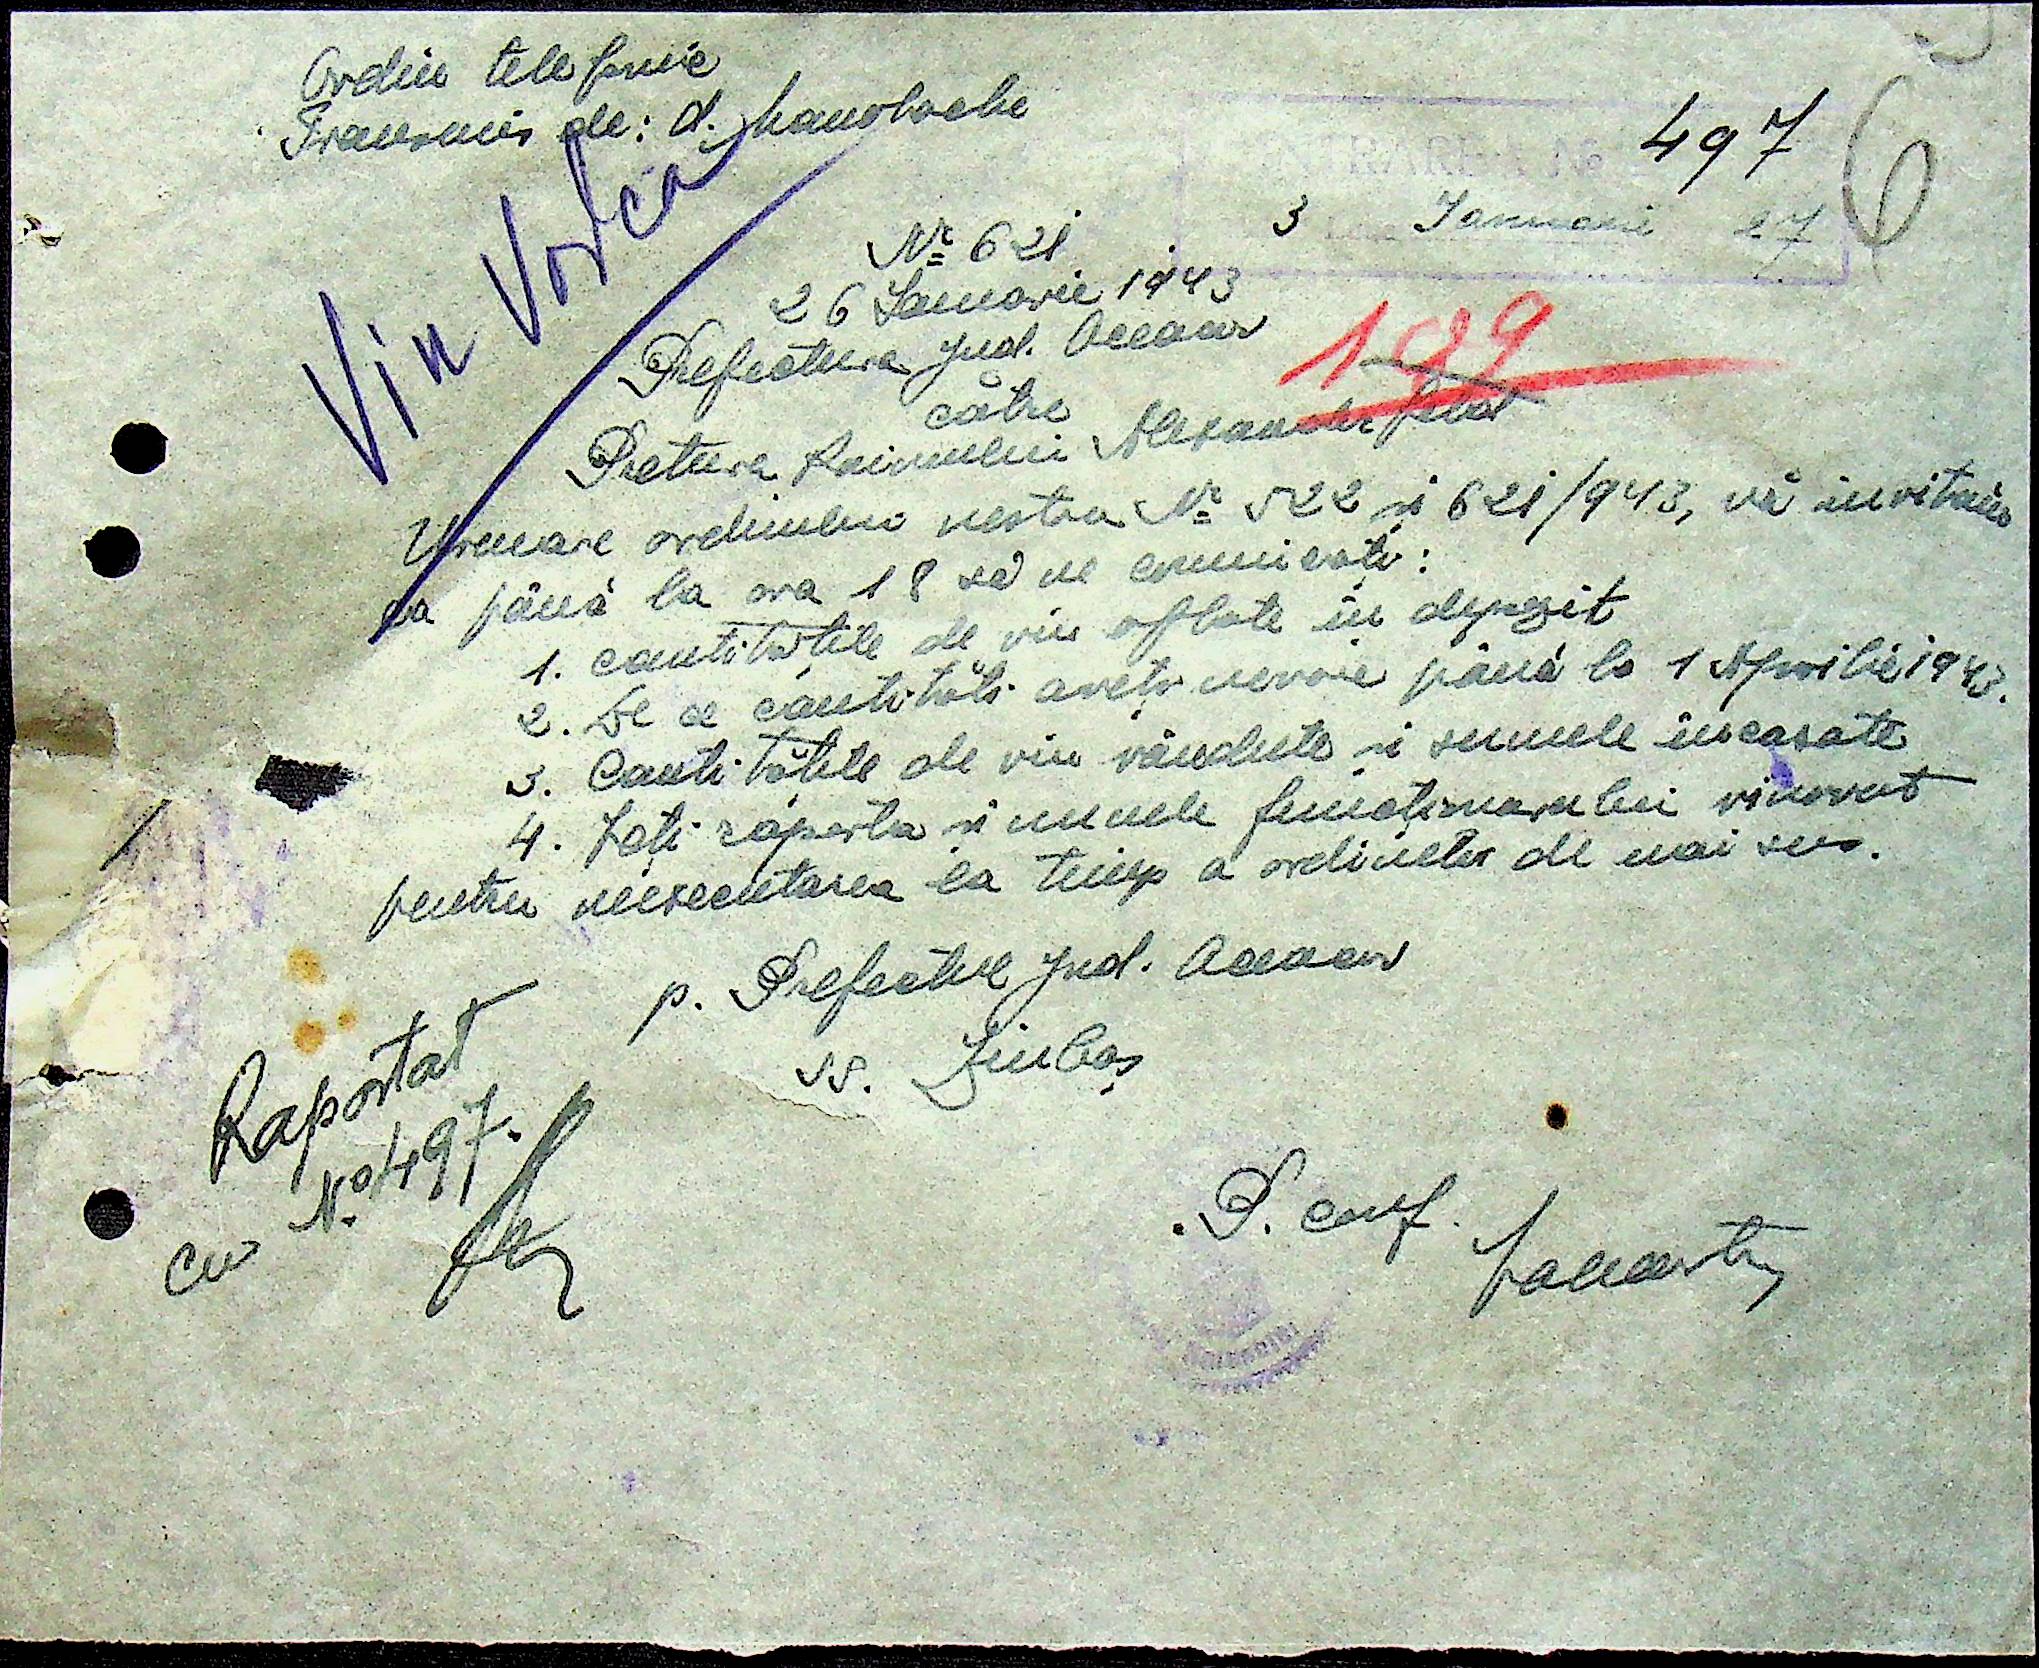 Ordin telefonic
Transmis de: d. Manolache
497
6
INTRARE No
3 Ianuarie 27
Vin Votcă
No 621
26 Ianuarie 1943
199
Prefectura Jud. Ananiev
către
Pretura Raionului
Urmare ordinului nostru No 522 și 621/943, vă invităm
ca până la ora 18 să ne comunicați:
1. cantitățile de vin aflate în depozit
2. De ce cantități aveți nevoie până la 1 Aprilie 1943.
3. Cantitățile de vin vândute și sumele încasate
4. Veți raporta și numele funcționarului vinovat
pentru neexecutarea la timp a ordinelor de mai sus.
p. Prefectul Jud. Ananiev
ss.
Raportat
cu No 497.
P. conf.